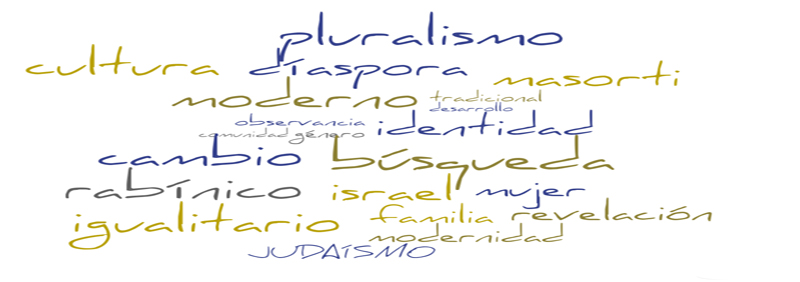 pluralismo
cultura díaspora masorti
moderno tradicional
desarrollo
observancia identidad
comunidad género
cambio búsqueda
rabínico israel mujer
igualitario familia revelación
modernidad
JUDAÍSMO